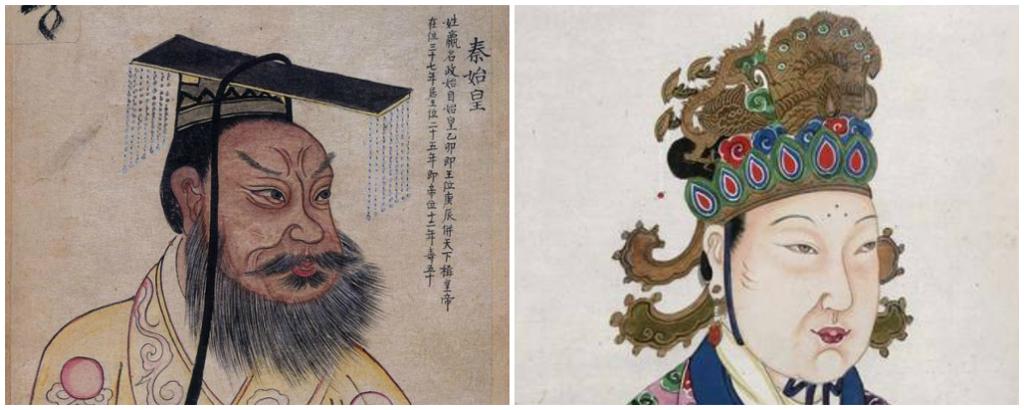 秦始皇
姓嬴名政始自始皇乙卯即王位庚辰併天下稱皇帝
在位三十七年為王位二十五年即帝位十二年壽五十